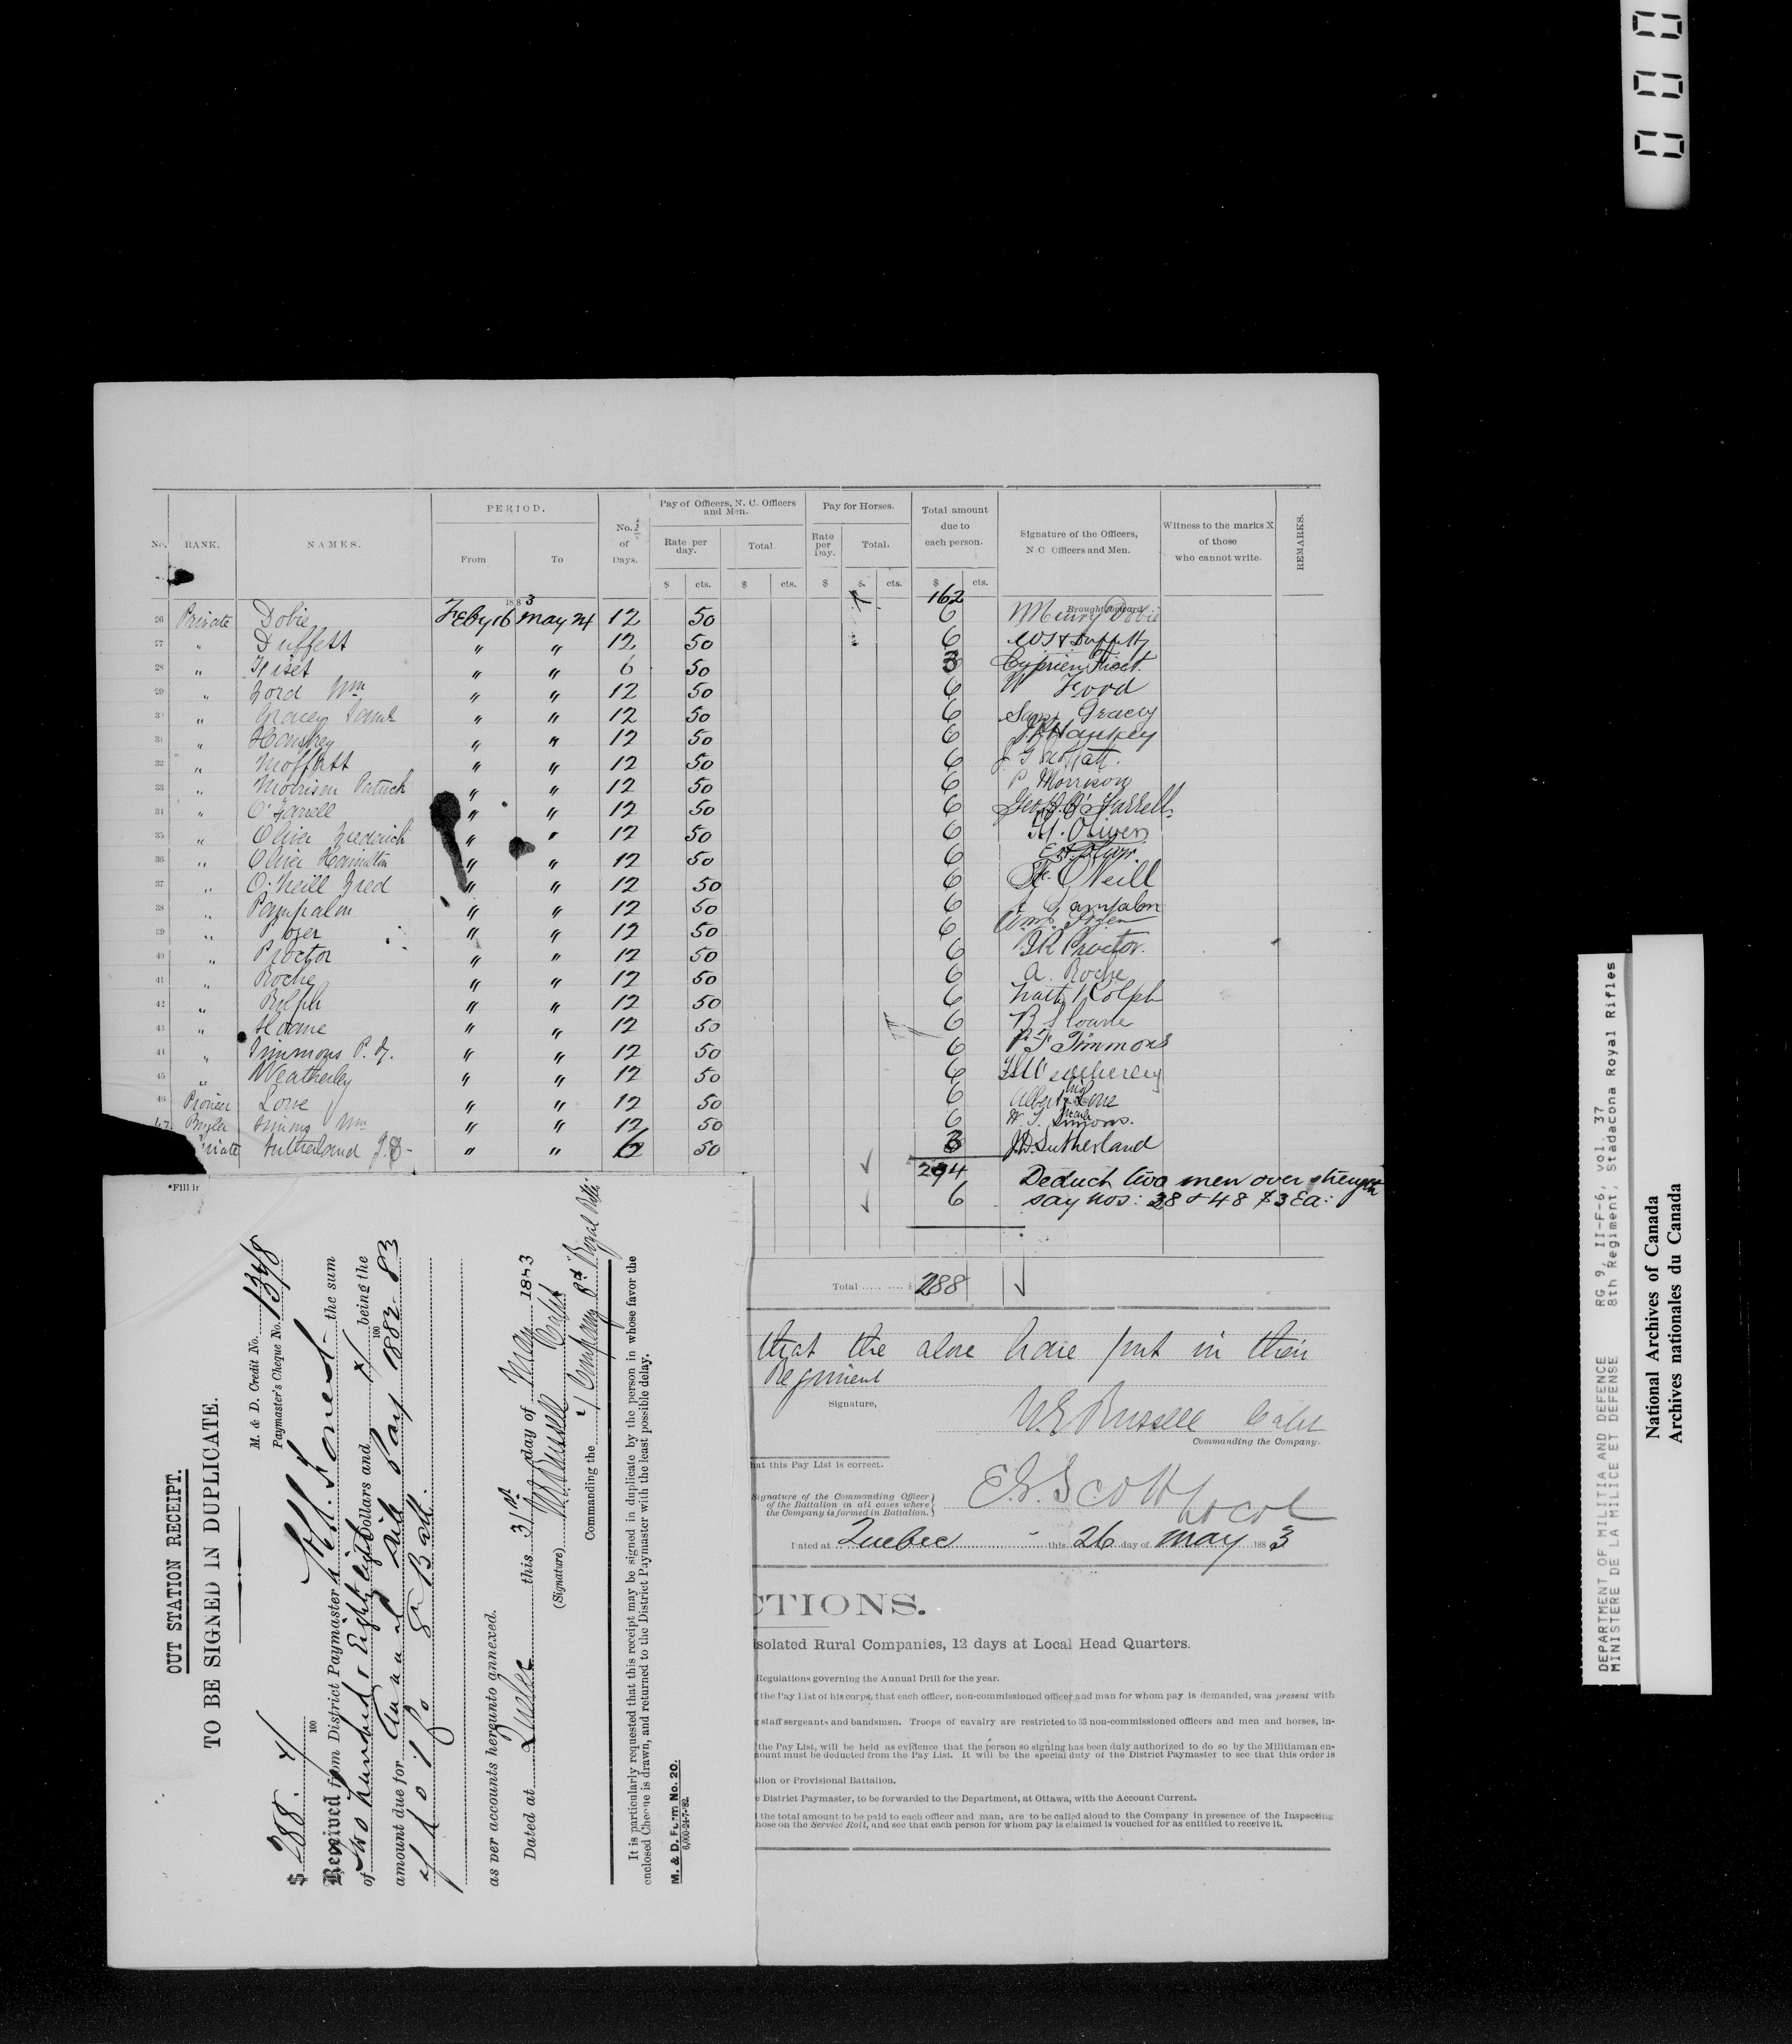 PERIOD.
Pay of Officers, N. C. Officers and Men.
Pay for Horses.
Total amount due to each person.
Signature of the Officers, N C Officers and Men.
Witness to the marks X of those who cannot write.
REMARKS.
No. RANK. NAMES. From To No. of Days. Rate per day. Total Rate per Day. Total.
$ cts. $ cts. $ $ cts. $ cts.
1883 162 Brought forward
26 Private Dobie Feby 16 May 24 12 50 6 Henry Dobie
27 " Duffett " " 12 50 6
28 " Fiset " " 6 50 3 Cyprien Fiset
29 " Ford Wm " " 12 50 6 W Ford
30 " Gracey Saml " " 12 50 6 Saml Gracey
31 " Hankey " " 12 50 6 Hankey
32 " Moffatt " " 12 50 6 J G Moffatt.
33 " Morrison Patrick " " 12 50 6 P Morrison
34 " O'Farrell " " 12 50 6 O'Farrell
35 " Oliver Frederick " " 12 50 6 F. Oliver
36 " Oliver Hamilton " " 12 50 6
37 " O'Neill Fred " " 12 50 6 F. O'Neill
38 " Pampalon " " 12 50 6 Pampalon
39 " Pozer " " 12 50 6 Wm. Pozer
40 " Proctor " " 12 50 6 J R Proctor.
41 " Roche " " 12 50 6 A. Roche
42 " Rolph " " 12 50 6 Rolph
43 " Sloane " " 12 50 6 R Sloane
44 " Timmons P. F. " " 12 50 6 P. F. Timmons
45 " Weatherley " " 12 50 6 Weatherley
46 Pioneer Lowe " " 12 50 6 Albert his Lowe mark
47 Bugler Simons Wm " " 12 50 6 W. T. Simons.
Private Sutherland J. D- " " 6 50 3 J. D. Sutherland
294 Deduct two men over strength
6 say nos: 28 & 48 $3 Ea:
Total .......... $ 288
that the above have put in their
Regiment
Signature,
W. E. Russell Capt
Commanding the Company.
hat this Pay List is correct.
Signature of the Commanding Officer
of the Battalion in all cases where
the Company is formed in Battalion.
Scott Lt Col
Dated at Quebec this 26 day of May 1883
CTIONS.
isolated Rural Companies, 12 days at Local Head Quarters.
Regulations governing the Annual Drill for the year.
the Pay List of his corps, that each officer, non-commissioned officer and man for whom pay is demanded, was present with
staff sergeants and bandsmen. Troops of cavalry are restricted to 35 non-commissioned officers and men and horses, in-
the Pay List, will be held as evidence that the person so signing has been duly authorized to do so by the Militiaman en-
mount must be deducted from the Pay List. It will be the special duty of the District Paymaster to see that this order is
alion or Provisional Battalion.
District Paymaster, to be forwarded to the Department, at Ottawa, with the Account Current.
the total amount to be paid to each officer and man, are to be called aloud to the Company in presence of the Inspecting
hose on the Service Roll, and see that each person for whom pay is claimed is vouched for as entitled to receive it.
*Fill in
OUT STATION RECEIPT.
TO BE SIGNED IN DUPLICATE.
M. & D. Credit No.
Paymaster's Cheque No. 1348
$ 288. x/100
Received from District Paymaster Forrest the sum
of Two hundred & Eighty eight Dollars and x/100 being the
amount due for Annual Drill Pay 1882-83
of No 1 Co 8th Batt.
as per accounts hereunto annexed.
Dated at Quebec this 31st day of May 1883
(Signature) W. E. Russell Capt
Commanding the 1 Company 8th Royal Rifles
It is particularly requested that this receipt may be signed in duplicate by the person in whose favor the
enclosed Cheque is drawn, and returned to the District Paymaster with the least possible delay.
M. & D. Form No. 20.
6,000-24-7-'82.
000
DEPARTMENT OF MILITIA AND DEFENCE RG 9, II-F-6, vol. 37
MINISTERE DE LA MILICE ET DEFENSE 8th Regiment, Stadacona Royal Rifles
National Archives of Canada
Archives nationales du Canada